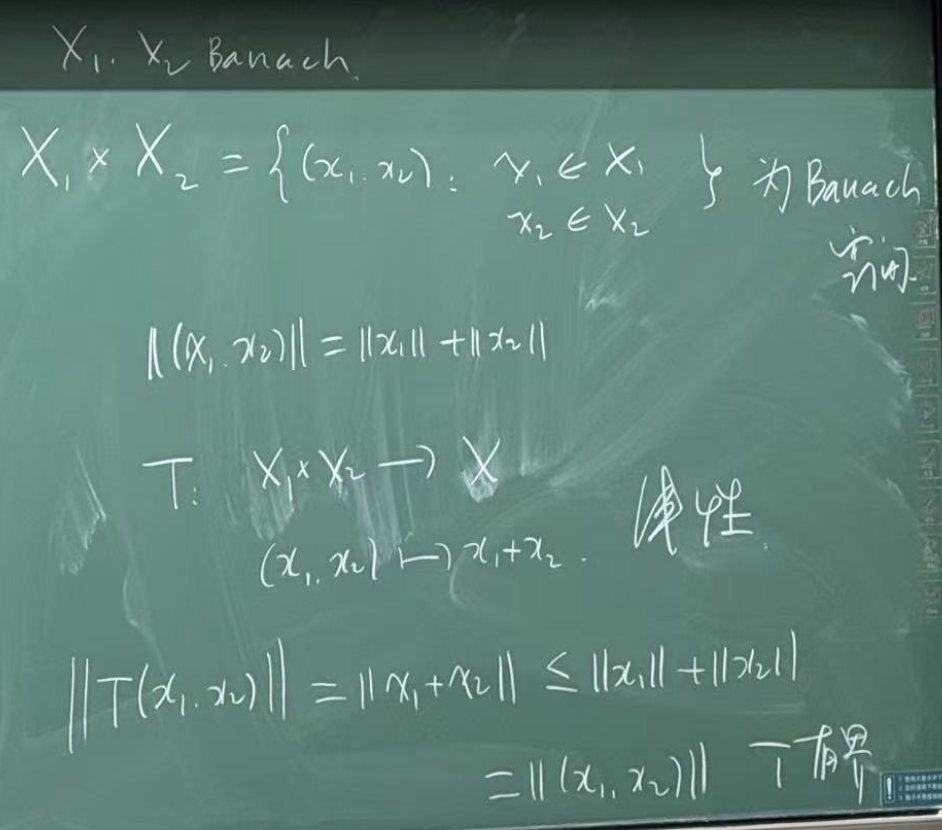 X₁. X₂ Banach.
X₁ × X₂ = {(x₁. x₂): x₁ ∈ X₁ } 为 Banach
x₂ ∈ X₂
空间.
‖(x₁. x₂)‖ = ‖x₁‖ + ‖x₂‖
T: X₁ × X₂ → X
线性.
(x₁. x₂) ↦ x₁+x₂.
‖T(x₁. x₂)‖ = ‖x₁+x₂‖ ≤ ‖x₁‖ + ‖x₂‖
= ‖(x₁, x₂)‖ T 有界